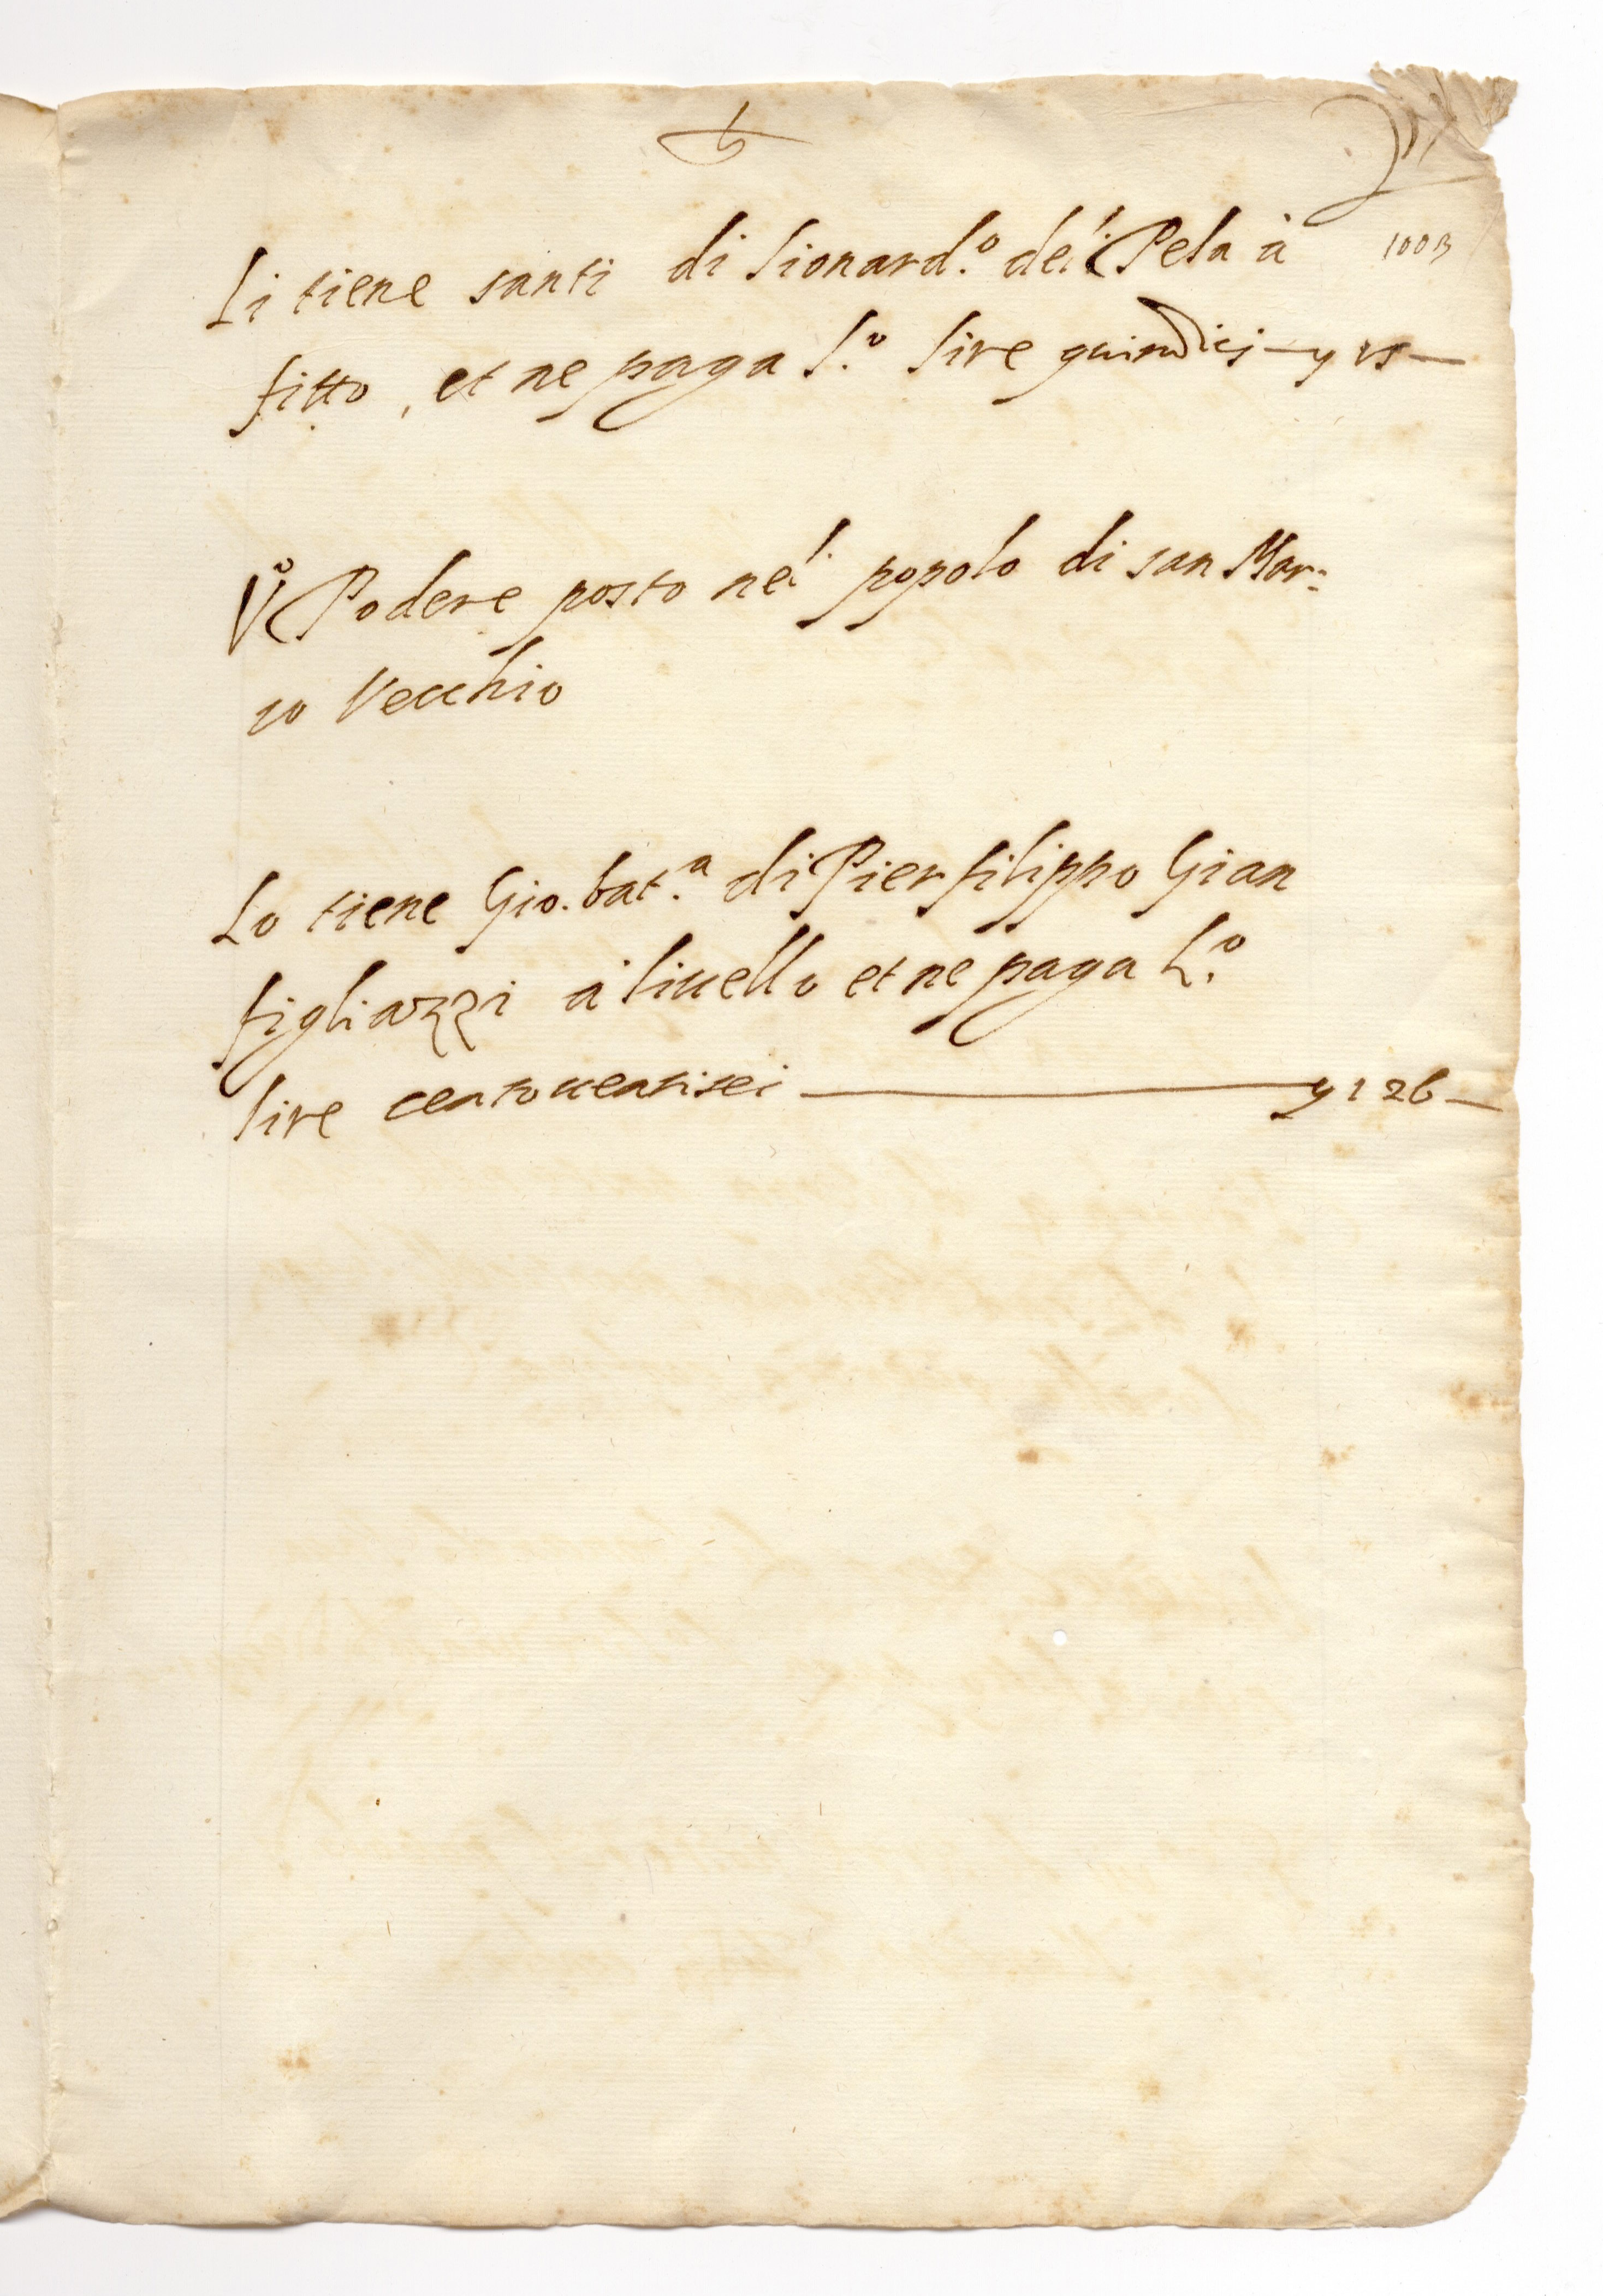 1003
Li tiene santi di Lionard.º del Pela à
fitto, et ne paga l.º lire quindici — y 15 —
Vº Podere posto nel popolo di san Mar:
co Vecchio
Lo tiene Gio. bat.ª di Pier filippo Gian
figliazzi à liuello et ne paga L.º
lire centouentisei — y 126 —